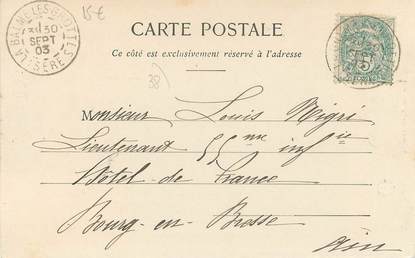 15€
CARTE POSTALE
Ce côté est exclusivement réservé à l'adresse
LA BALME-LES-GROTTES
30
SEPT
03
ISÈRE
5
38
Monsieur Louis Nigri
Lieutenant 55me infie
Hotel de France
Bourg-en-Bresse
Ain